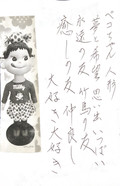 ペコちゃん人形
夢と希望 思い出いっぱい
永遠の友 竹馬の友
癒しの友 仲良し
大好き大好き